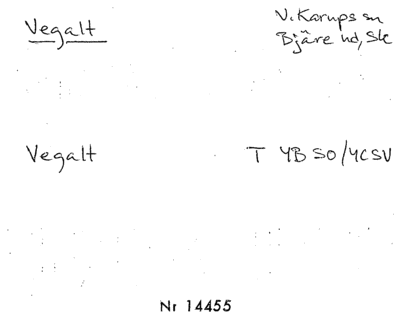 Vegalt
V. Karups sn
Bjäre hd, Sk
Vegalt
T 4B SO/4C SV
Nr 14455